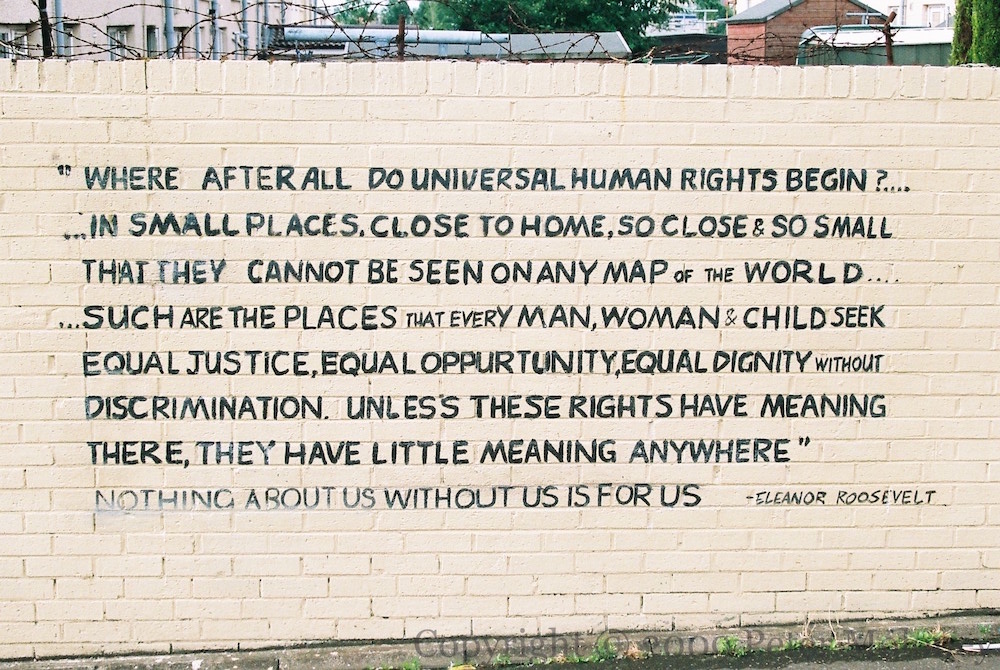 " WHERE AFTER ALL DO UNIVERSAL HUMAN RIGHTS BEGIN ?....
...IN SMALL PLACES. CLOSE TO HOME, SO CLOSE & SO SMALL
THAT THEY CANNOT BE SEEN ON ANY MAP OF THE WORLD....
...SUCH ARE THE PLACES THAT EVERY MAN, WOMAN & CHILD SEEK
EQUAL JUSTICE, EQUAL OPPURTUNITY, EQUAL DIGNITY WITHOUT
DISCRIMINATION. UNLESS THESE RIGHTS HAVE MEANING
THERE, THEY HAVE LITTLE MEANING ANYWHERE"
NOTHING ABOUT US WITHOUT US IS FOR US -ELEANOR ROOSEVELT
Copyright © Peter